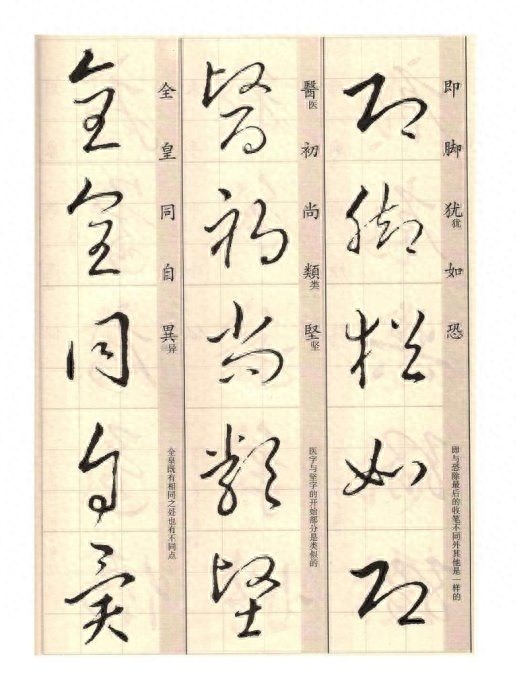 即脚犹犹如恐
即与恐除最后的收笔不同外其他是一样的
即脚犹如恐
醫医初尚類类堅坚
医字与坚字的开始部分是类似的
醫初尚類堅
全皇同自異异
全皇既有相同之处也有不同点
全皇同自異